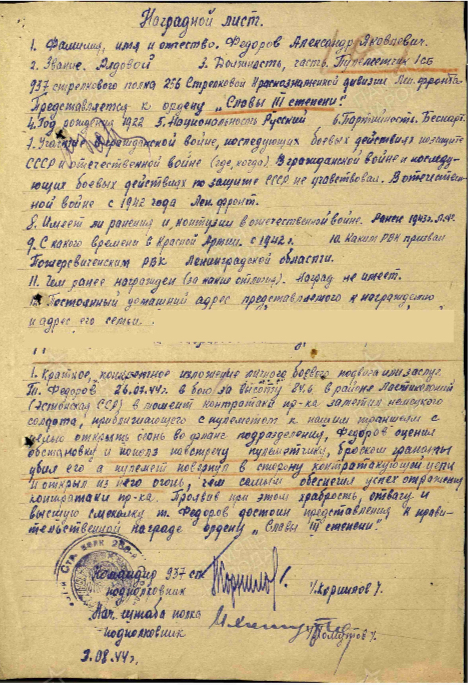 Наградной лист.
1. Фамилия, имя и отчество. Федоров Александр Яковлевич.
2. Звание. Рядовой 3. Должность, часть. Пулеметчик 1СБ
937 стрелкового полка 256 Стрелковой Краснознаменной дивизии Лен. фронта
Представляется к ордену „Славы III степени"
4. Год рождения 1922 5. Национальность Русский 6. Партийность. Беспарт.
7. Участие в гражданской войне, последующих боевых действиях по защите
СССР и отечественной войне (где, когда) В гражданской войне и последу-
ющих боевых действиях по защите СССР не участвовал. В отечествен-
ной войне с 1942 года Лен. фронт.
8. Имеет ли ранения и контузии в отечественной войне. Ранен 1943г.
9. С какого времени в Красной Армии. с 1942 г. 10. Каким РВК призван
РВК Ленинградской области.
11. Чем ранее награжден (за какие отличия). Наград не имеет.
12. Постоянный домашний адрес представляемого к награждению
и адрес его семьи.
1. Краткое, конкретное изложение личного боевого подвига или заслуг.
Т. Федоров 26.07.44г. в бою за высоту 84.6 в районе
(Эстонская ССР) в момент контратаки пр-ка заметил немецкого
солдата, приближающего с пулеметом к нашим траншеям с
целью открыть огонь во фланг подразделения, Федоров оценил
обстановку и пополз навстречу пулеметчику, броском гранаты
убил его а пулемет повернул в сторону контратакующей цепи
и открыл из него огонь, чем самым обеспечил успех отражения
контратаки пр-ка. Проявив при этом храбрость, отвагу и
высшую смекалку т. Федоров достоин представления к прави-
тельственной награде ордену „Славы III степени"
Командир 937 сп
подполковник /Корнилов/
Нач. штаба полка
подполковник
3.08.44г.